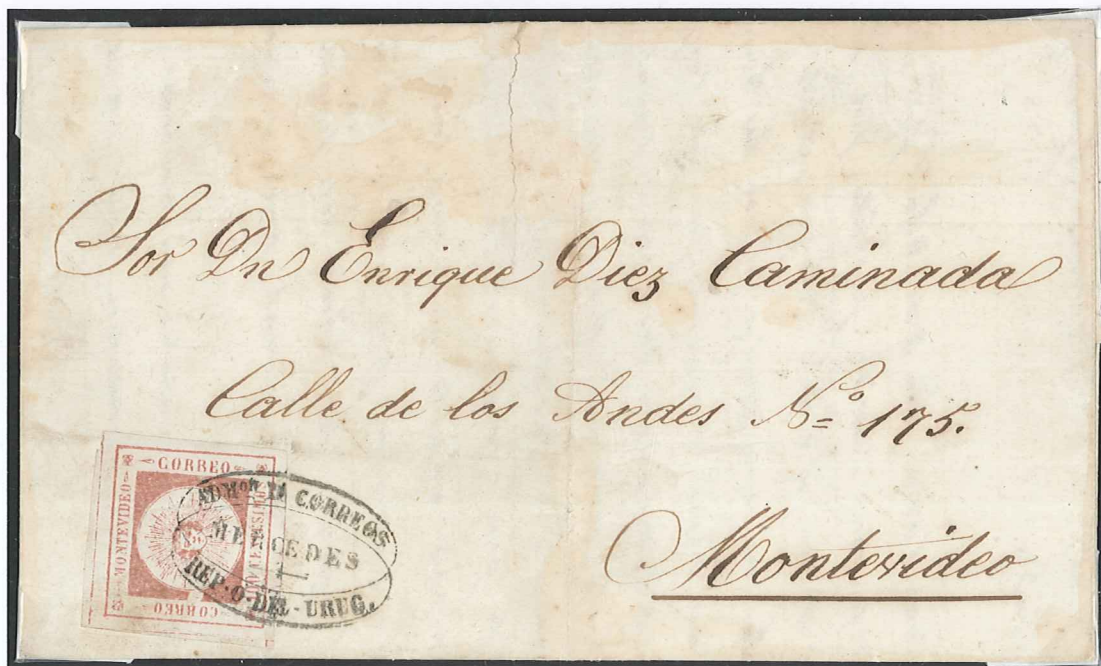 Sor Dn Enrique Diez Caminada
Calle de los Andes Nº 175.
Montevideo
CORREO
MONTEVIDEO
CORREO
ADMon DE CORREOS
MERCEDES
REP·O·DEL·URUG.